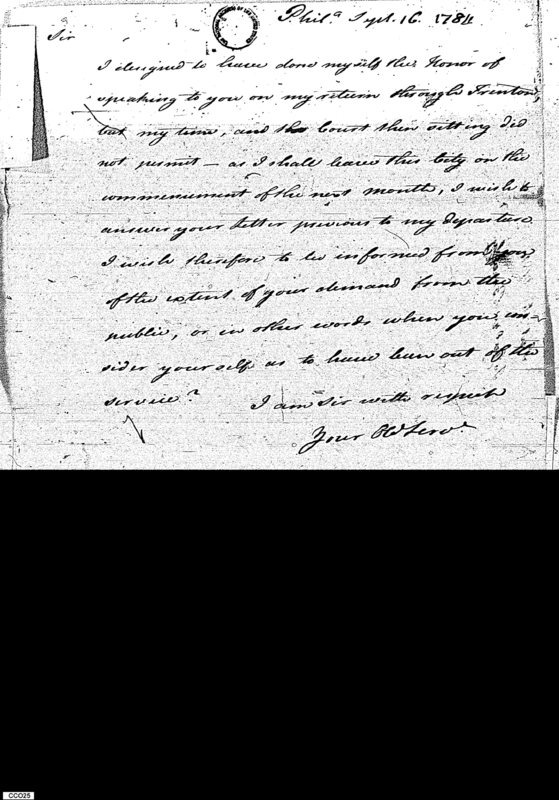 Phila Sept. 16. 1784
Sir
I designed to have done myself the Honor of
speaking to you on my return through Trenton,
but my time, and the Court then sitting did
not permit — as I shall leave this City on the
commencement of the next month, I wish to
answer your letter previous to my departure
I wish therefore to be informed from you
of the extent of your demand from the
public, or in other words when you con-
sider yourself as to have been out of the
service?
I am Sir with respect
Your Ob Serv.
CCO25